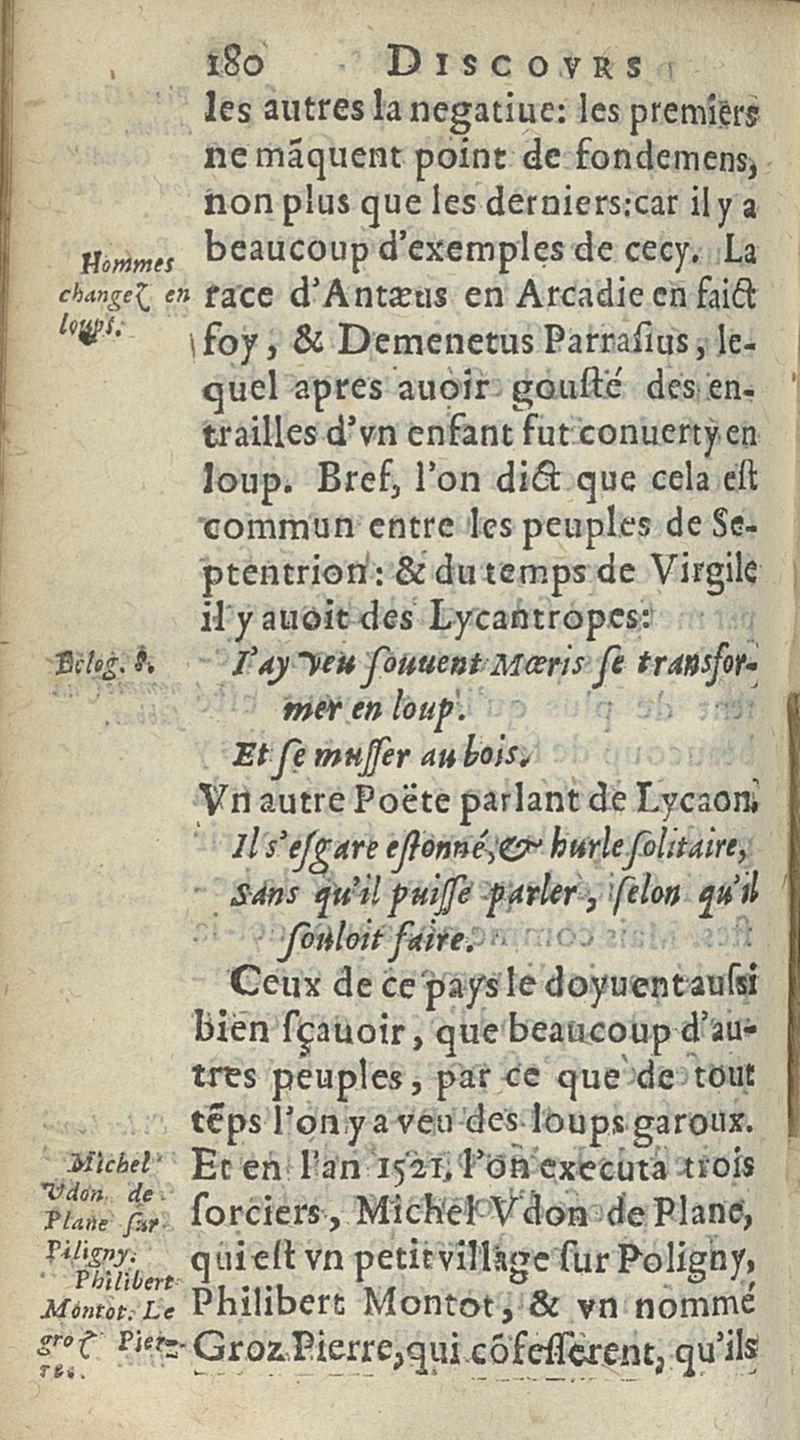 180 DISCOVRS
les autres la negatiue: les premiers
ne mãquent point de fondemens,
non plus que les derniers: car il y a
beaucoup d'exemples de cecy. La
race d'Antæus en Arcadie en faict
foy, & Demenetus Parrasius, le-
quel apres auoir gousté des en-
trailles d'vn enfant fut conuerty en
loup. Bref, l'on dict que cela est
commun entre les peuples de Se-
ptentrion: & du temps de Virgile
il y auoit des Lycantropes:
I'ay veu souuent Mœris se transfor-
mer en loup.
Et se musser au bois.
Vn autre Poëte parlant de Lycaon.
Il s'esgare estonné, & hurle solitaire,
Sans qu'il puisse parler, selon qu'il
souloit faire.
Ceux de ce pays le doyuent aussi
bien sçauoir, que beaucoup d'au-
tres peuples, par ce que de tout
tẽps l'on y a veu des loups garoux.
Et en l'an 1521. l'on executa trois
sorciers, Michel Vdon de Plane,
qui est vn petit village sur Poligny,
Philibert Montot, & vn nommé
Groz Pierre, qui cõfesserent, qu'ils
Hommes
changez en
loups.
Eclog. 8.
Michel
Vdon de
Plane sur
Piligny.
Philibert
Montot. Le
groz Pier-